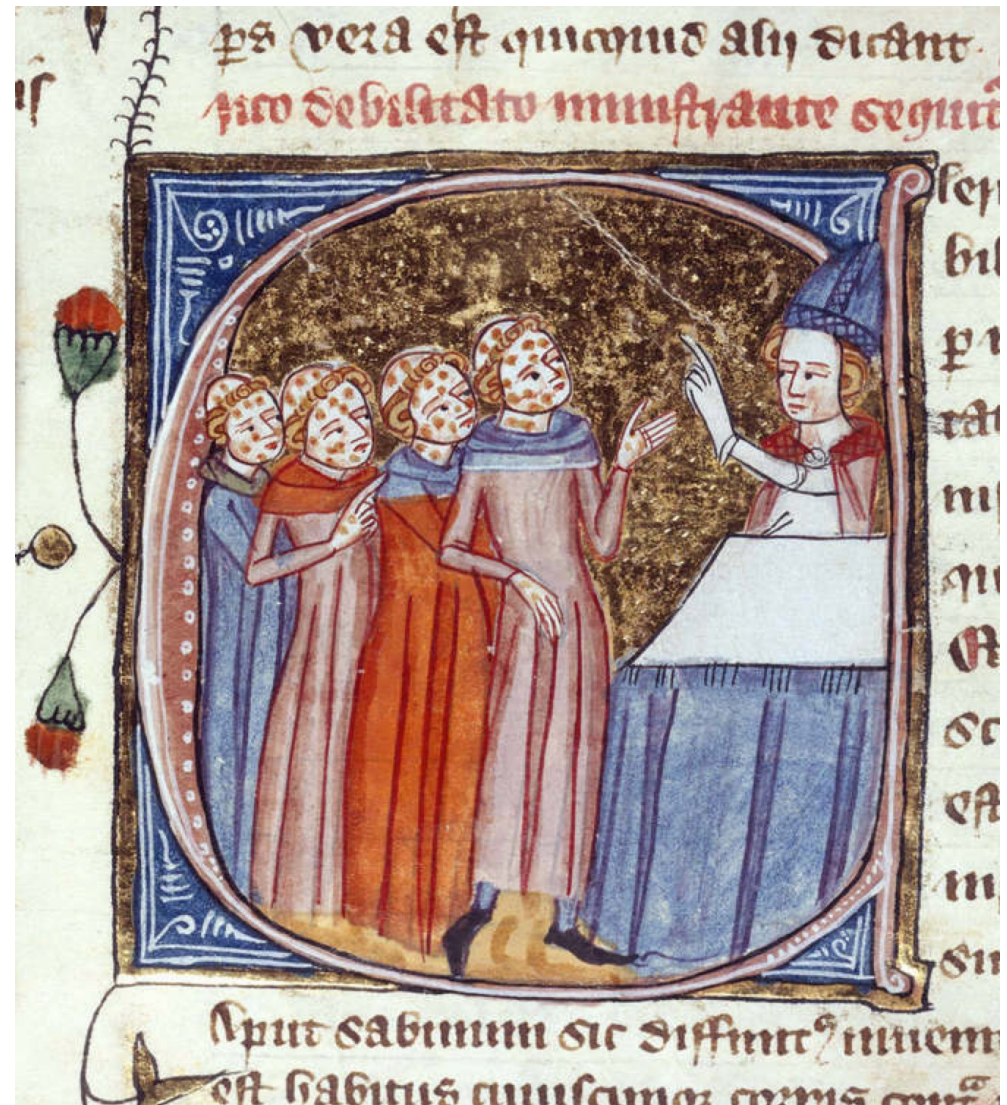 ps vera est quicquid alij dicant
rico debilitato ministrante sequit
ler
bil
tat
sc
est
su
Aput sabinum sic diffinit inueni
est habitus cuiuscunqz corpis